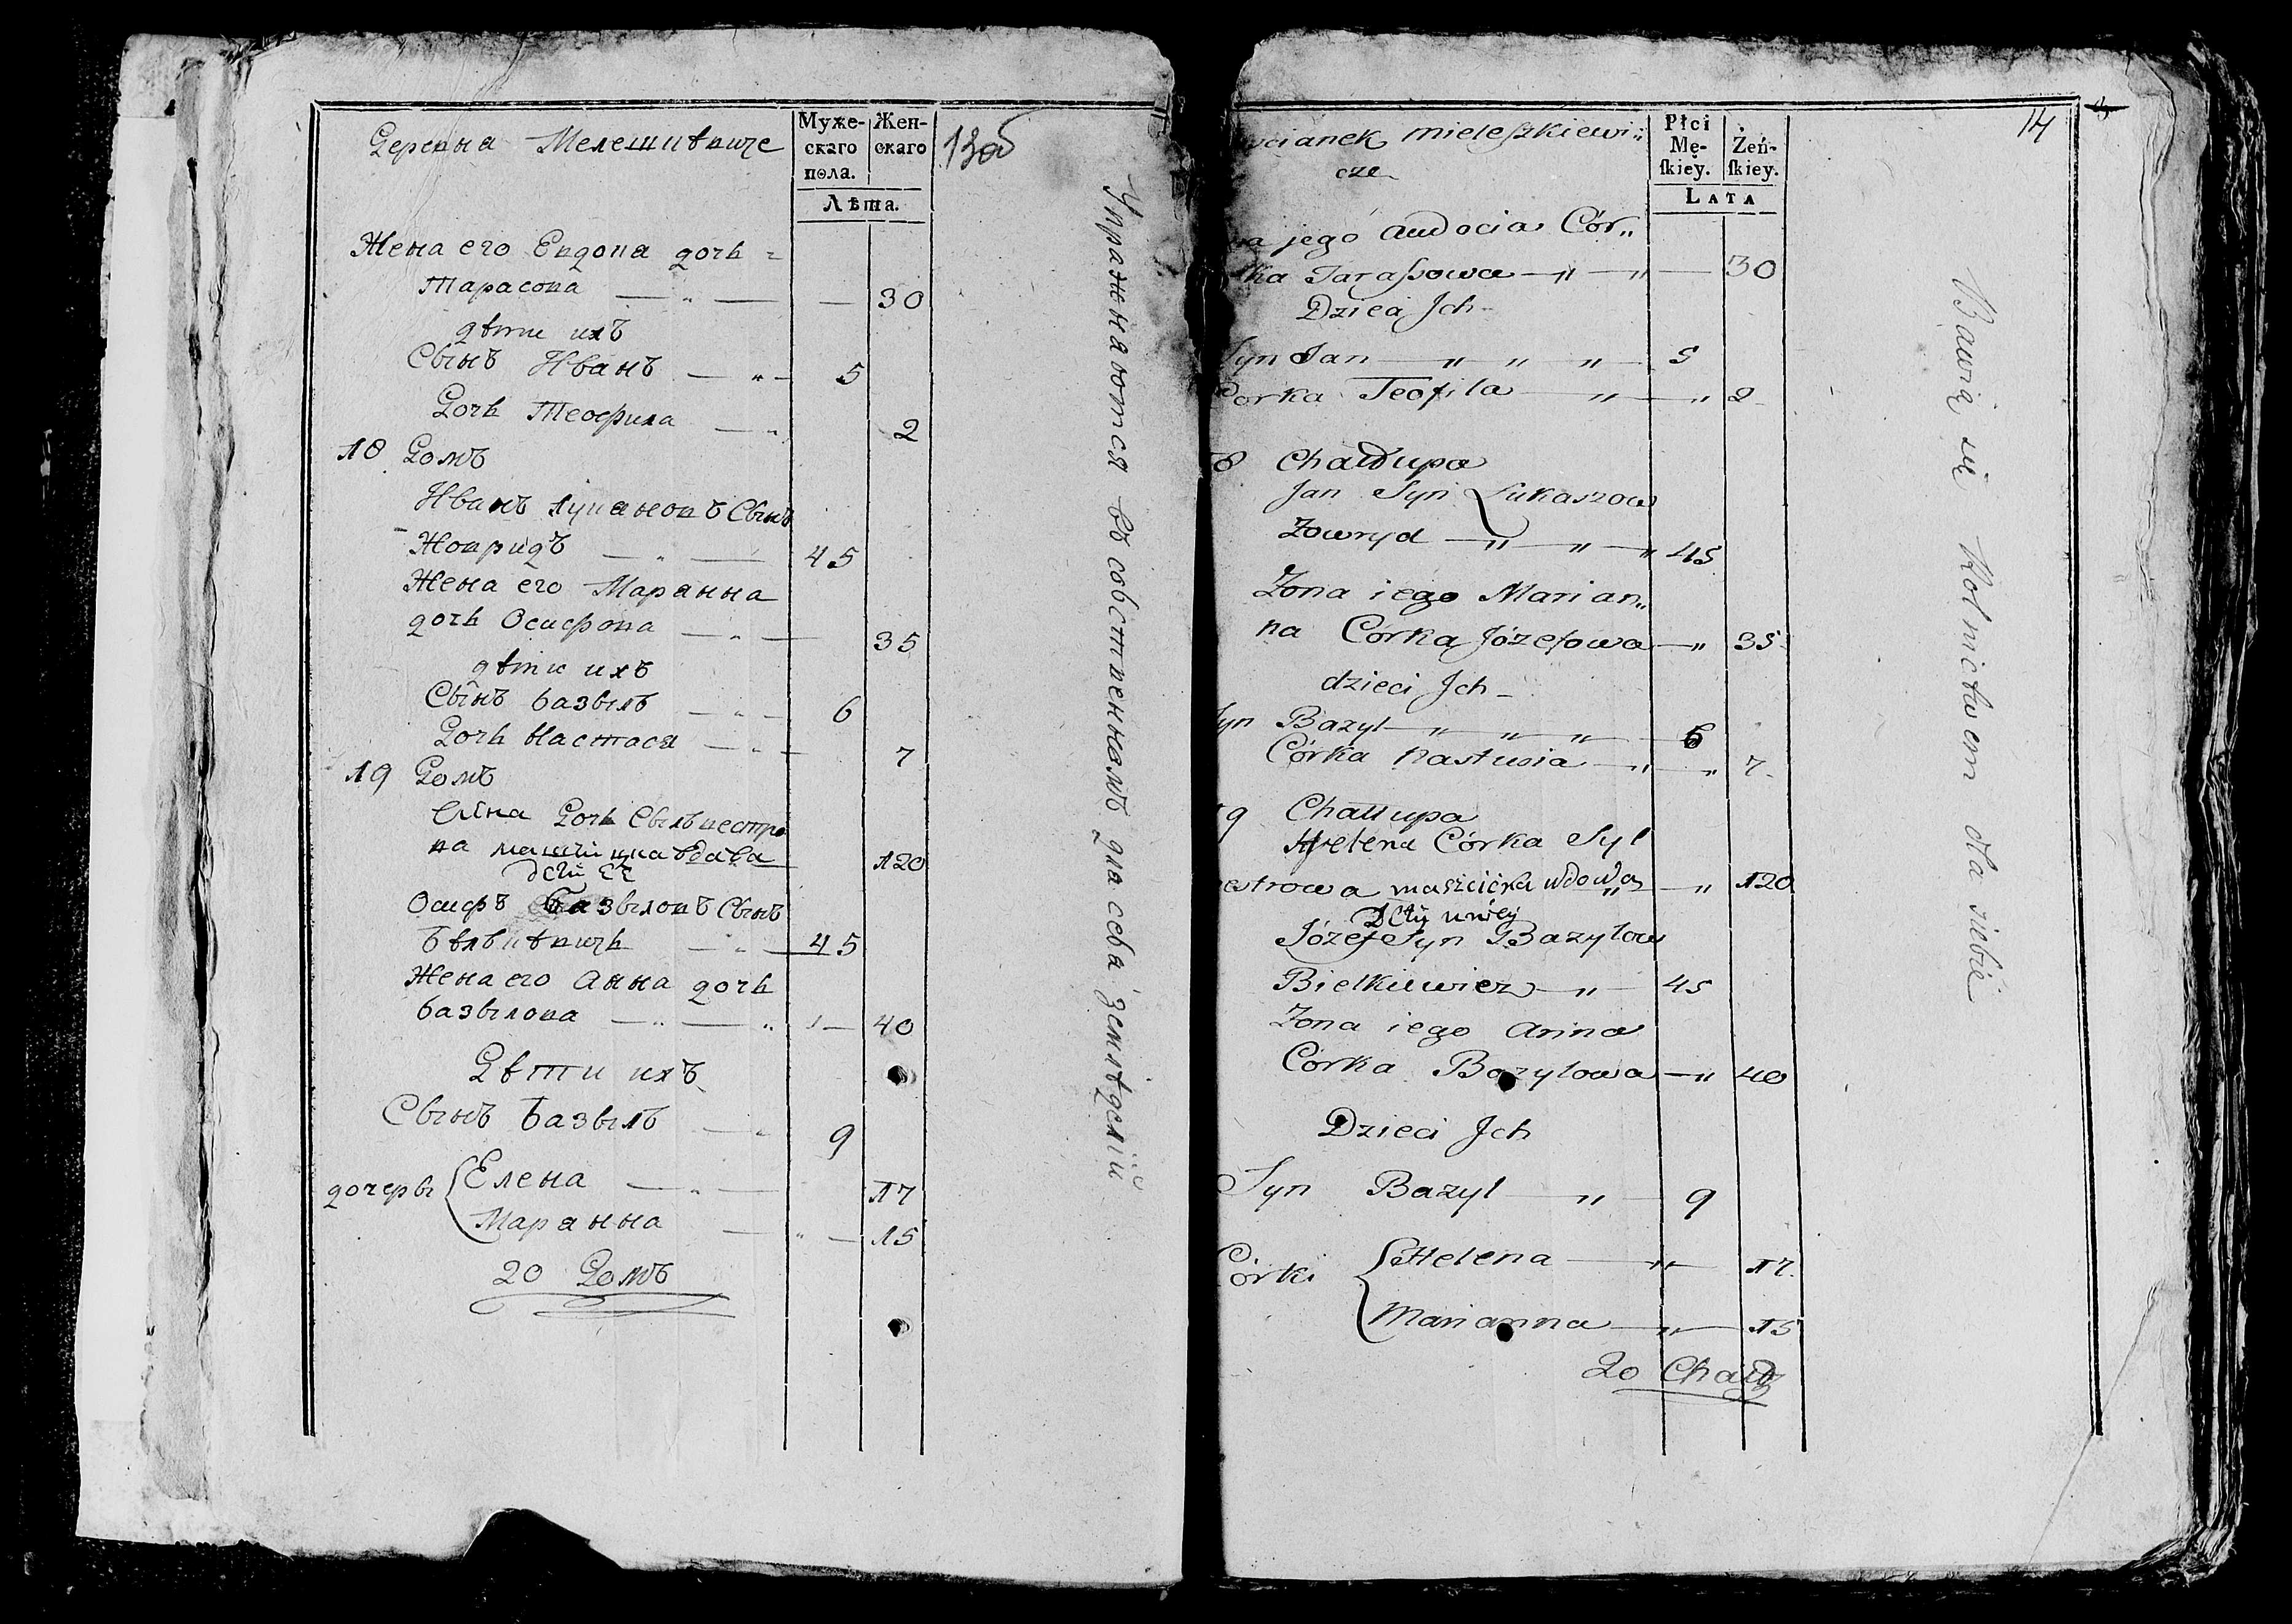 Деревна Мелешкѣвиче
Муже-
скаго
пола.
Жен-
скаго
Лѣта.
13об
Жена его Евдоця дочь
Тарасова — „ — — 30
дѣти ихъ
Сынъ Иванъ — „ — 5
Дочь Теофила — „ 2
18 Домъ
Иванъ Лукашовъ Сынъ
Жовридъ — „ — 45
Жена его Маріанна
дочь Осифова — „ — 35
дѣти ихъ
Сынъ Базыль — „ — 6
Дочь Настася — „ — 7
19 Домъ
Елена Дочь Сыльвестро
ва вдова 120
дети ее
Осифъ Базыловъ Сынъ
Бѣлькѣвичь — „ — 45
Жена его Анна дочь
Базылова — „ — „ — 40
Дѣти ихъ
Сынъ Базыль — „ 9
дочеры { Елена — „ — 17
Маріанна — „ — 15
20 Домъ
Упражнаются въ собственномъ для себа земледелій
wcianek Mieleszkiewi„
cze
Płci
Mę-
ſkiey.
Żeń-
ſkiey.
Lata
14
na jego Audocia Cór„
ka Taraſsowa — „ — „ — 30
Dzieci Jch
Syn Jan — „ „ „ — 5
Corka Teofila — „ — „ 2
18 Chałłupa
Jan Syn Łukaszow
Żowryd — „ — „ — „ 45
Żona iego Marian„
na Córka Józefowa — „ 35
dzieci Jch
Syn Bazyl — „ „ „ — 6
Córka Nastusia — „ — „ 7
19 Chałłupa
Helena Córka Syl
estrowa wdowa — „ 120
Józef Syn Bazylow
Bielkiewicz — „ — 45
Żona iego Anna
Córka Bazylowa — „ 40
Dzieci Jch
Syn Bazyl — „ — 9
Córki { Helena — „ — 17
Marianna — „ — 15
20 Chałł
Bawią się Rolnictwem dla siebie